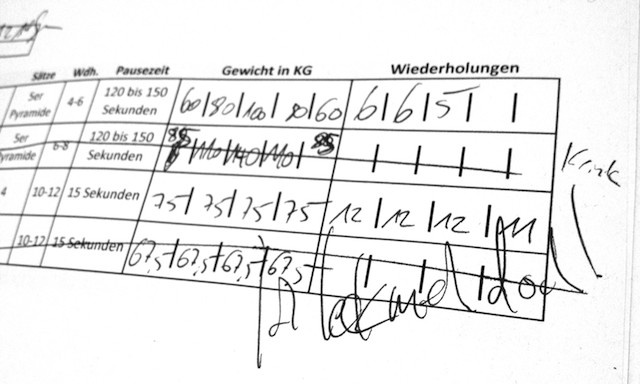 Sätze Wdh. Pausezeit Gewicht in KG Wiederholungen
5er Pyramide 4-6 120 bis 150 Sekunden 60|80|100| 80|60 6|6|5| |
5er Pyramide 6-8 120 bis 150 Sekunden 85 |110|140|110| 85 | | | |
4 10-12 15 Sekunden 75|75|75|75 12|12|12|11
10-12 15 Sekunden 67,5|67,5|67,5|67,5 | | |